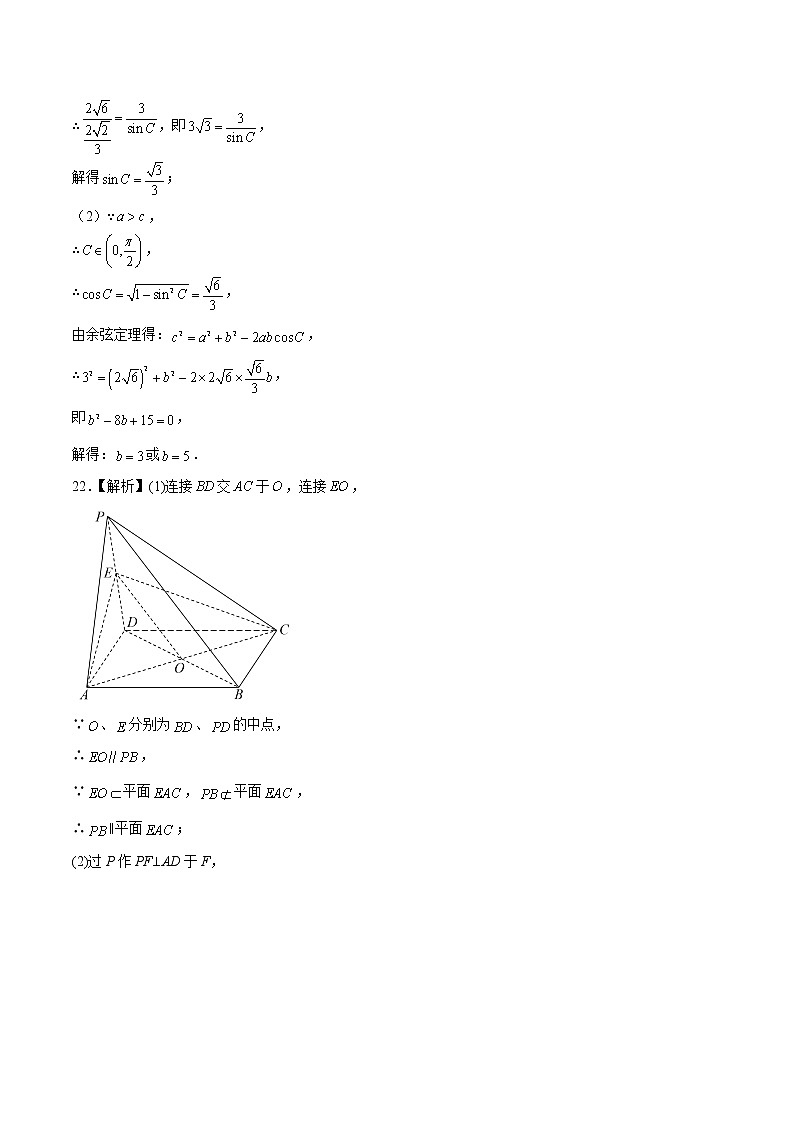 ∴ \frac{2\sqrt{6}}{\frac{2\sqrt{2}}{3}} = \frac{3}{\sin C}，即 3\sqrt{3} = \frac{3}{\sin C}，
解得 \sin C = \frac{\sqrt{3}}{3}；
（2）∵ a > c，
∴ C ∈ \left(0, \frac{π}{2}\right)，
∴ \cos C = \sqrt{1 - \sin^2 C} = \frac{\sqrt{6}}{3}，
由余弦定理得：c² = a² + b² − 2ab cos C，
∴ 3² = (2\sqrt{6})² + b² − 2×2\sqrt{6}×\frac{\sqrt{6}}{3}b，
即 b² − 8b + 15 = 0，
解得：b = 3 或 b = 5．
22.【解析】(1)连接 BD 交 AC 于 O，连接 EO，
P
E
D
C
O
A
B
∵ O、E 分别为 BD、PD 的中点，
∴ EO // PB，
∵ EO ⊂ 平面 EAC，PB ⊄ 平面 EAC，
∴ PB∥平面 EAC；
(2)过 P 作 PF⊥AD 于 F，